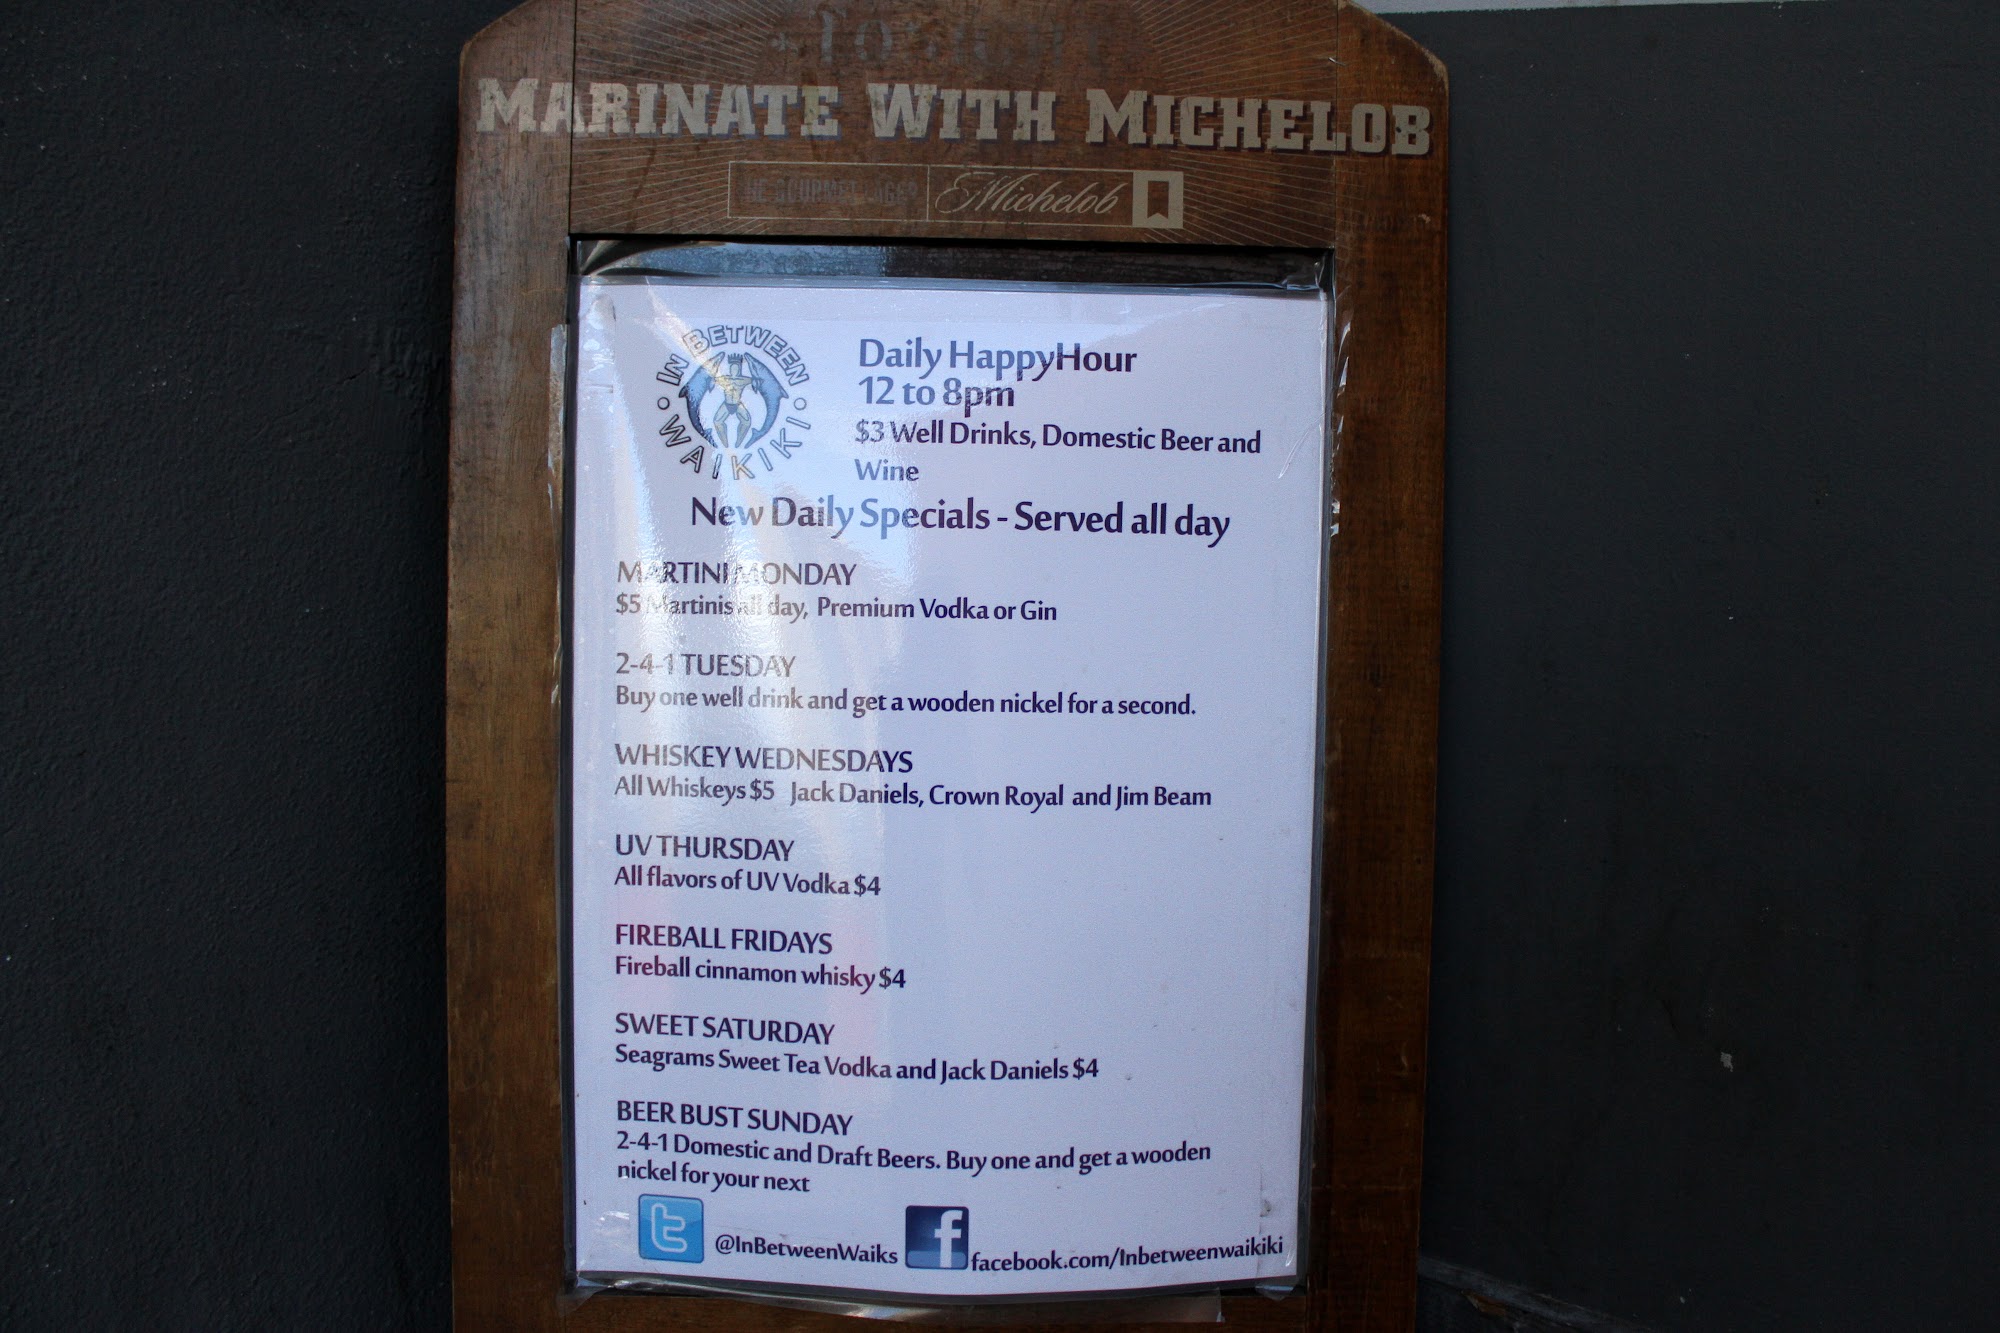 MARINATE WITH MICHELOB
THE GOURMET LAGER Michelob
IN BETWEEN
• WAIKIKI •
Daily HappyHour
12 to 8pm
$3 Well Drinks, Domestic Beer and
Wine
New Daily Specials - Served all day
MARTINI MONDAY
$5 Martinis all day, Premium Vodka or Gin
2-4-1 TUESDAY
Buy one well drink and get a wooden nickel for a second.
WHISKEY WEDNESDAYS
All Whiskeys $5 Jack Daniels, Crown Royal and Jim Beam
UV THURSDAY
All flavors of UV Vodka $4
FIREBALL FRIDAYS
Fireball cinnamon whisky $4
SWEET SATURDAY
Seagrams Sweet Tea Vodka and Jack Daniels $4
BEER BUST SUNDAY
2-4-1 Domestic and Draft Beers. Buy one and get a wooden
nickel for your next
@InBetweenWaiks
facebook.com/Inbetweenwaikiki